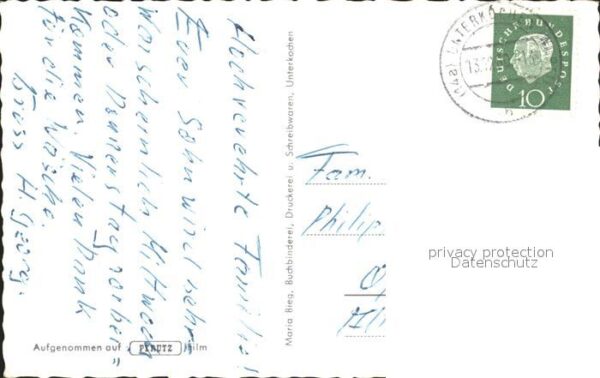 Hochverehrte Familie!
Euer Sohn wird sehr
warscheinlich Mittwoch
oder Donnerstag vorbei
kommen. Vielen Dank
für die Wäsche.
Gruss H. Georg.
Aufgenommen auf PERUTZ Film
Maria Bieg, Buchbinderei, Druckerei u. Schreibwaren, Unterkochen
(14a) UNTERKOCHEN
13.12.
DEUTSCHE BUNDESPOST
10
Fam.
Philip
privacy protection
Datenschutz